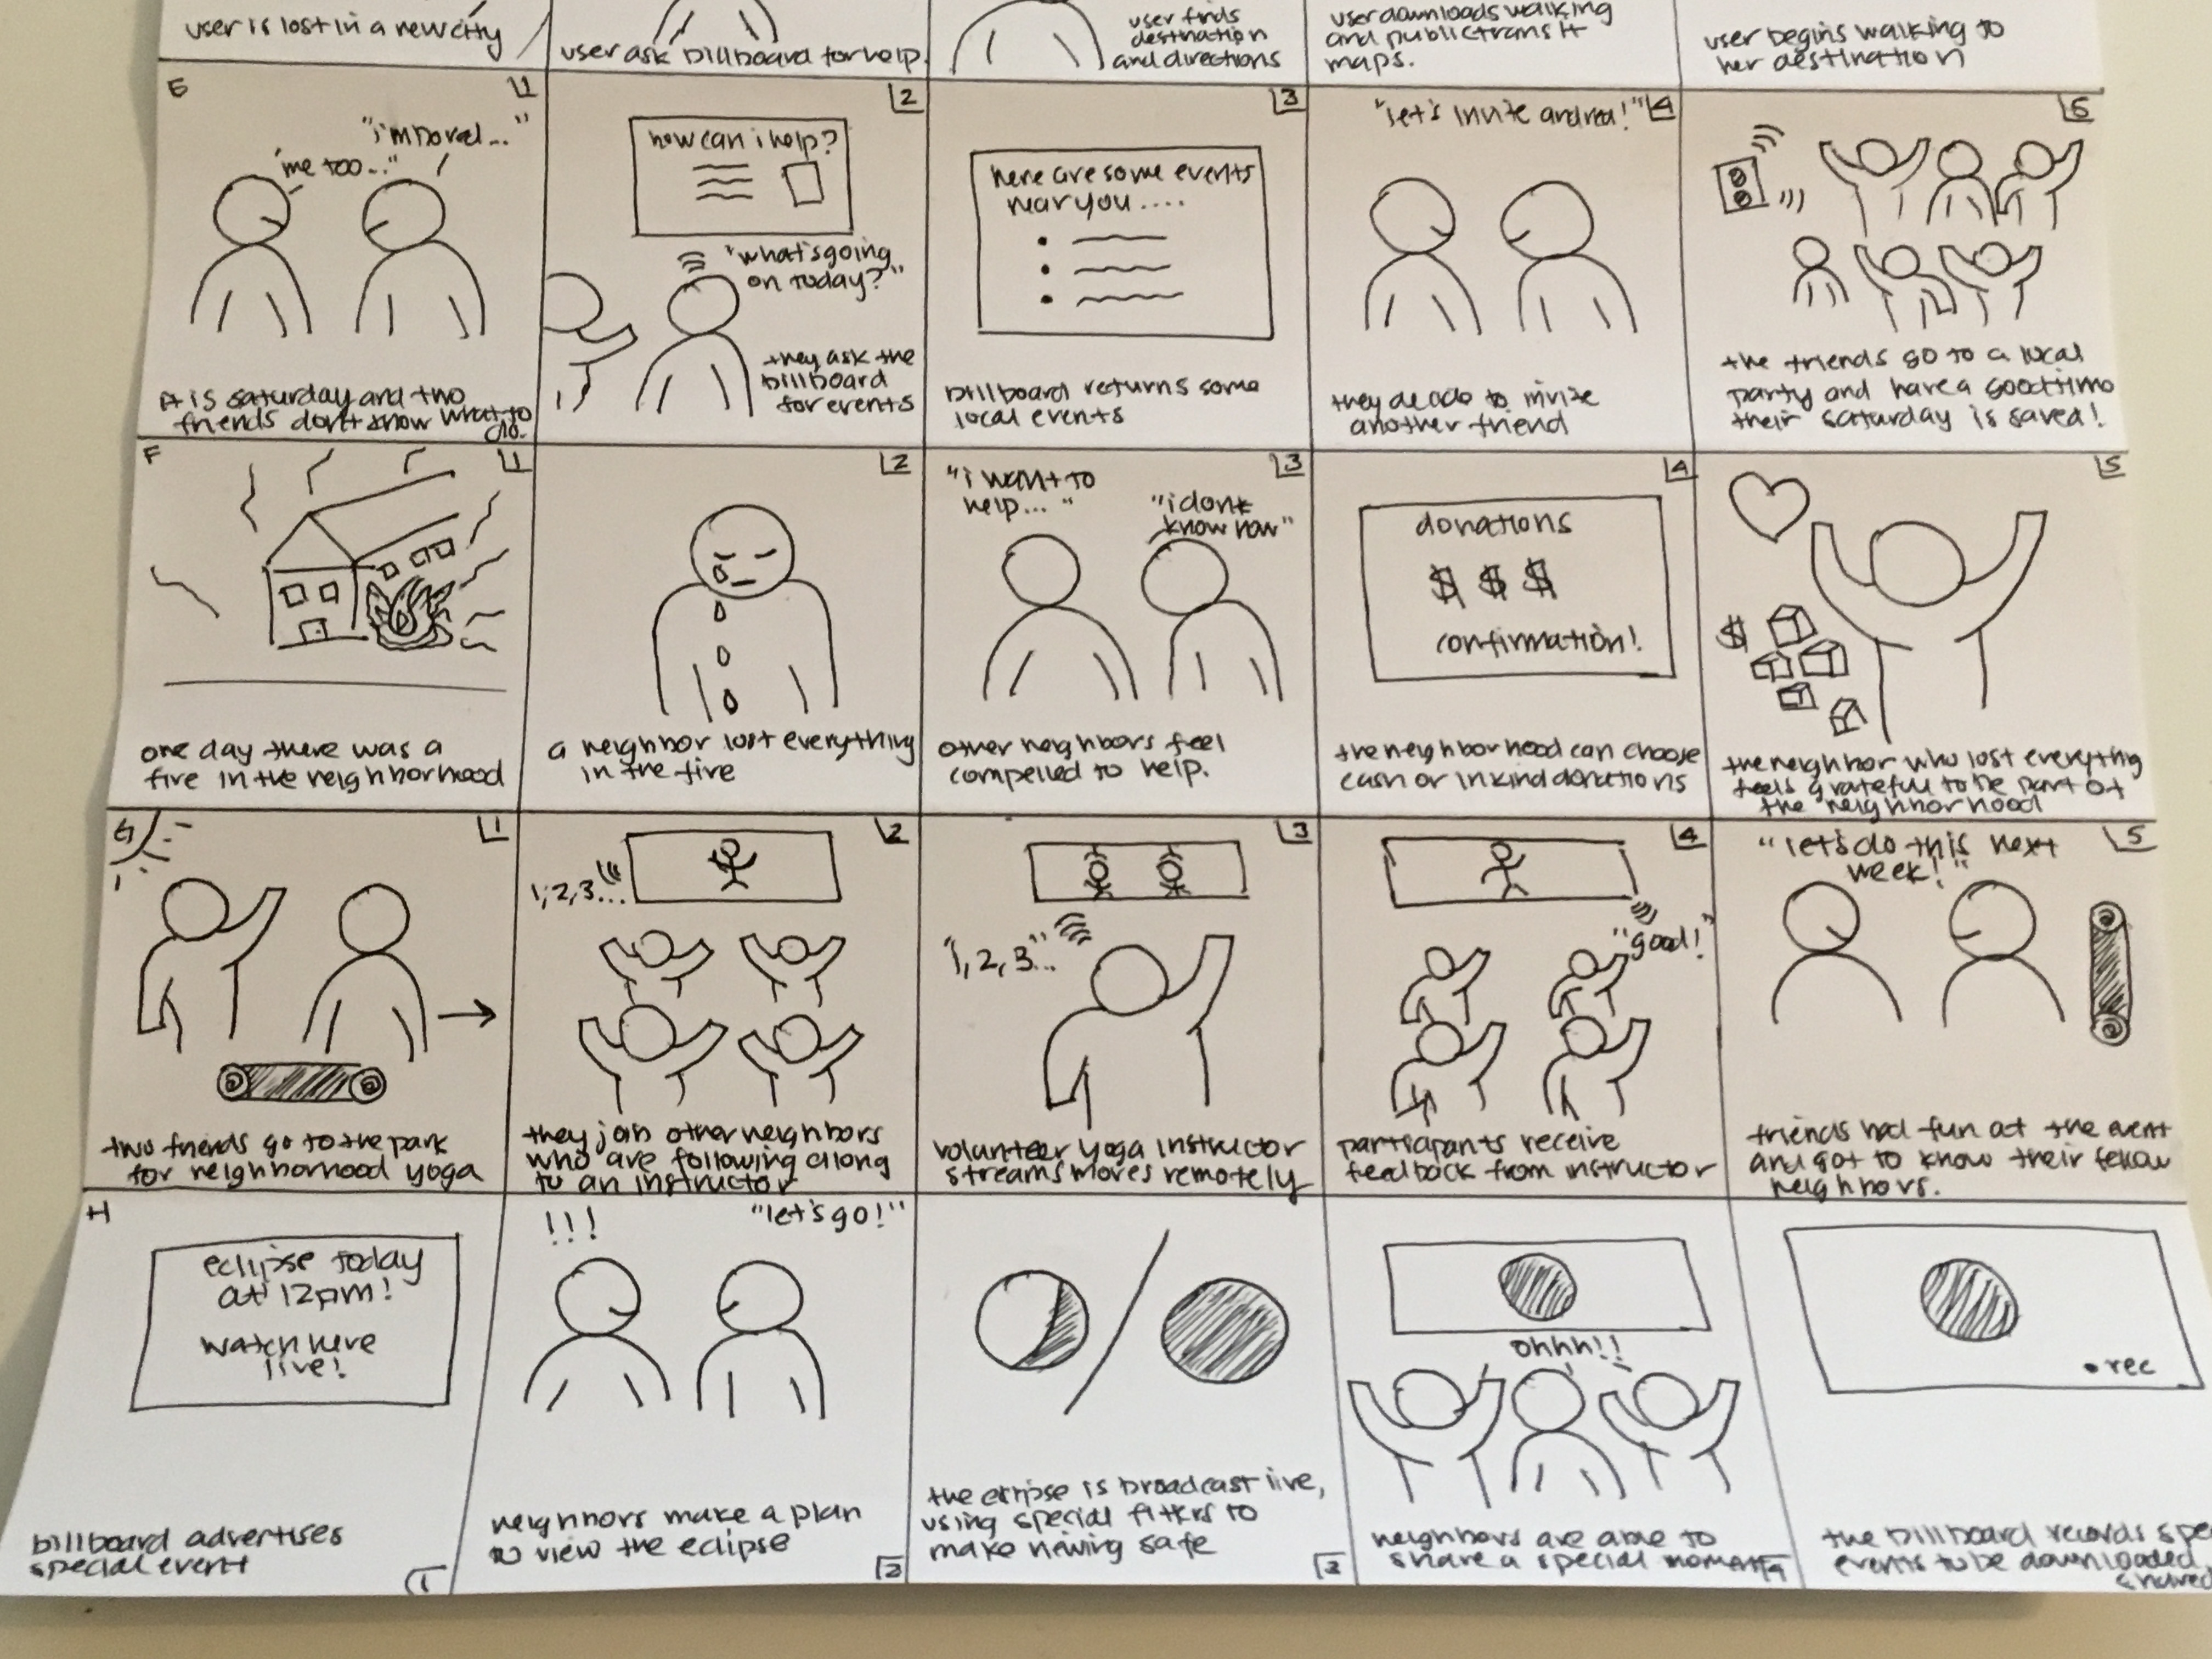 user is lost in a new city
user ask billboard for help.
user finds
destination
and directions
user downloads walking
and public transit
maps.
user begins walking to
her destination
E
1
"i'm bored..."
"me too..."
it is saturday and two
friends don't know what to
do.
2
how can i help?
"what's going
on today?"
they ask the
billboard
for events
3
here are some events
near you....
billboard returns some
local events
"let's invite andrea!"
4
they decide to invite
another friend
5
the friends go to a local
party and have a good time
their saturday is saved!
F
1
one day there was a
fire in the neighborhood
2
a neighbor lost everything
in the fire
3
"i want to
help..."
"i dont
know how"
other neighbors feel
compelled to help.
4
donations
$ $ $
confirmation!
the neighborhood can choose
cash or in kind donations
5
$
the neighbor who lost everything
feels grateful to be part of
the neighborhood
G
1
two friends go to the park
for neighborhood yoga
2
1, 2, 3...
they join other neighbors
who are following along
to an instructor
3
"1, 2, 3..."
volunteer yoga instructor
streams moves remotely
4
"good!"
participants receive
feedback from instructor
"let's do this next
week!"
5
friends had fun at the event
and got to know their fellow
neighbors.
H
eclipse today
at 12pm!
watch here
live!
billboard advertises
special event
1
!!!
"let's go!"
neighbors make a plan
to view the eclipse
2
the eclipse is broadcast live,
using special filters to
make viewing safe
3
ohhh!!
neighbors are able to
share a special moment
4
rec
the billboard records spe
events to be downloaded
& shared